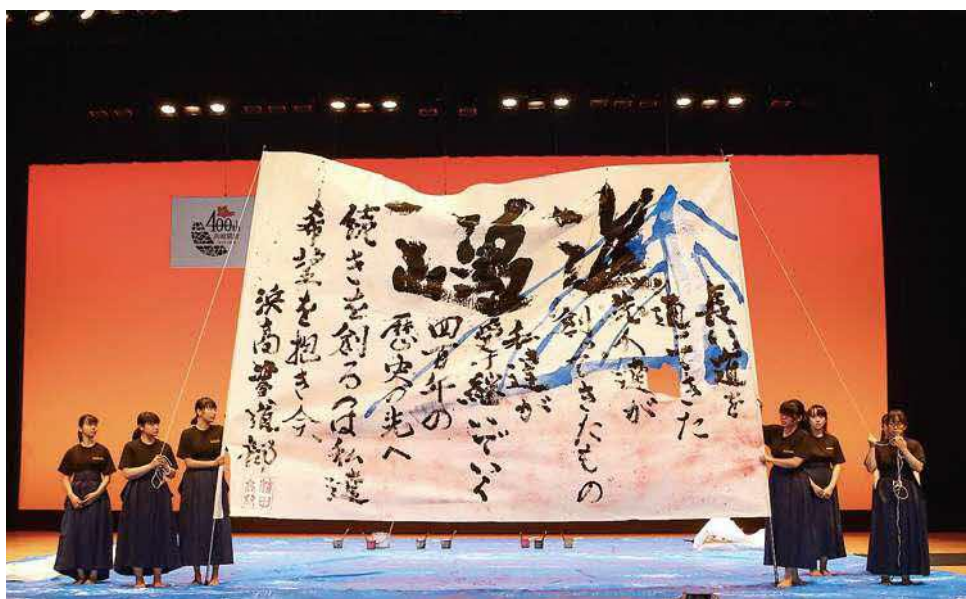 長い道を
通ってきた
先人達が
創ってきたもの
私達が
受け継いでいく
四百年の
歴史の光へ
続きを創るのは私達
希望を抱き今、
浜高書道部
400th